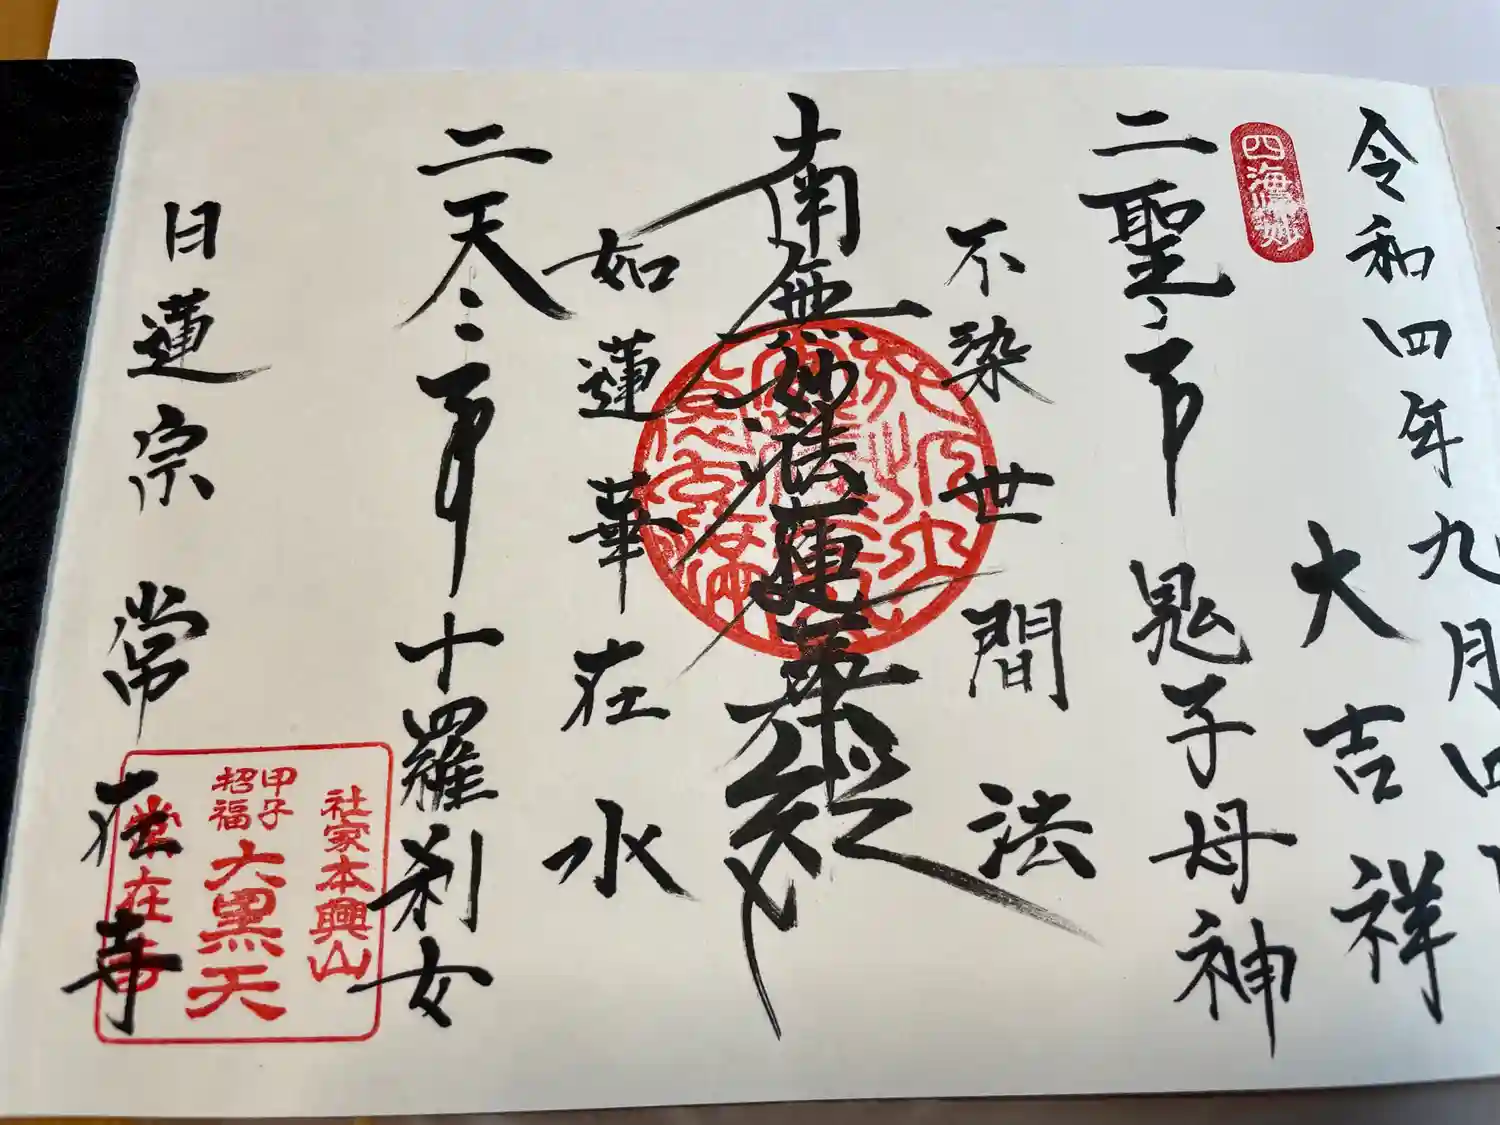 令和四年九月四日
大吉祥
四海帰妙
二聖
鬼子母神
不染世間法
南無妙法蓮華経
如蓮華在水
二天
十羅刹女
日蓮宗 常在寺
社家本興山
甲子
招福
大黒天
常在寺